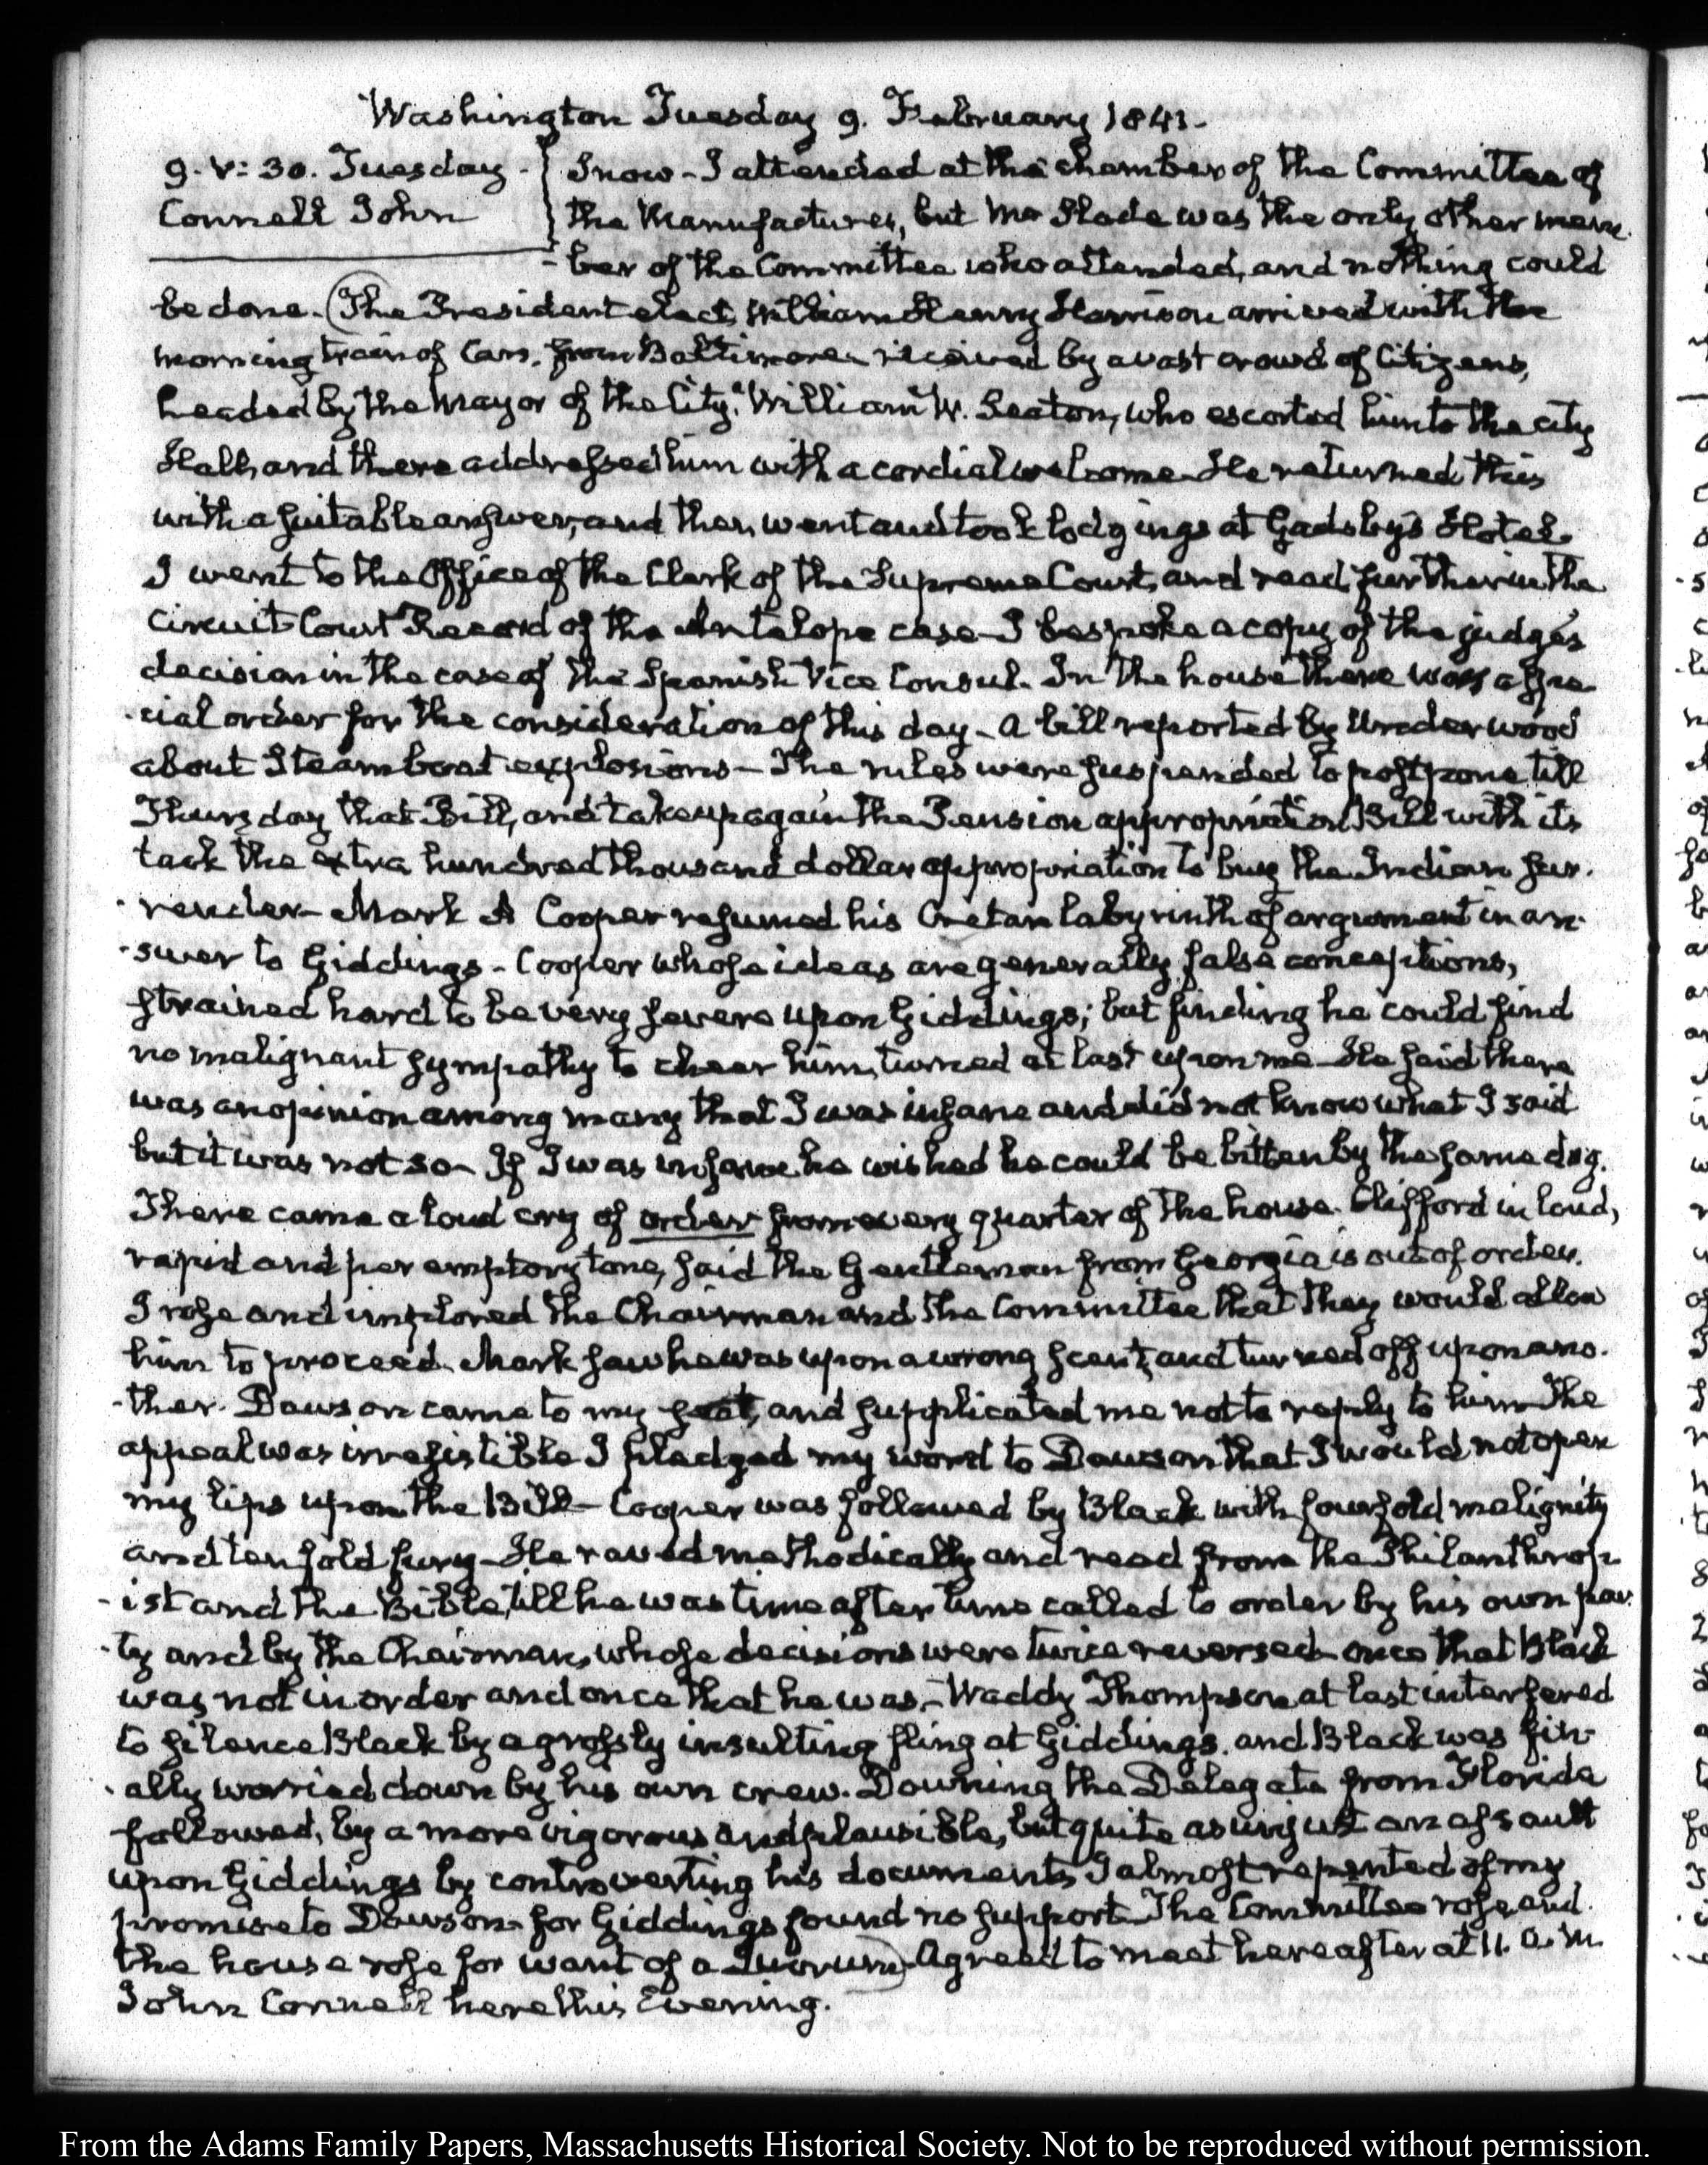 Washington Tuesday 9. February 1841.
9. V: 30. Tuesday
Connell John
Snow - I attended at the chamber of the Committee of
the Manufactures, but Mr Slade was the only other mem
-ber of the Committee who attended, and nothing could
be done. (The President elect, William Henry Harrison arrived with the
morning train of Cars, from Baltimore received by a vast crowd of Citizens,
headed by the Mayor of the City, William W. Seaton, who escorted him to the city
Hall, and there addressed him with a cordial welcome - He returned this
with a suitable answer, and then went and took lodgings at Gadsby's Hotel.
I went to the Office of the Clerk of the Supreme Court, and read further in the
Circuit Court Record of the Antelope case - I bespoke a copy of the judge's
decision in the case of the Spanish Vice Consul. In the house there was a spe
-cial order for the consideration of this day - a bill reported by Underwood
about Steam boat explosions - The rules were suspended to postpone till
Thursday that Bill, and take up again the Pension appropriation Bill with its
tack the extra hundred thousand dollar appropriation to buy the Indian sur-
-render - Mark A Cooper resumed his Cretan labyrinth of argument in an-
-swer to Giddings - Cooper whose ideas are generally false conceptions,
strained hard to be very severe upon Giddings; but finding he could find
no malignant sympathy to cheer him, turned at last upon me - He said there
was an opinion among many that I was insane and did not know what I said
but it was not so - If I was insane he wished he could be bitten by the same dog.
There came a loud cry of order from every quarter of the house. Clifford in loud,
rapid and peremptory tone, said the Gentleman from Georgia is out of order.
I rose and implored the Chairman and the Committee that they would allow
him to proceed. Mark saw he was upon a wrong scent, and turned off upon ano-
-ther. Dawson came to my seat, and supplicated me not to reply to him - The
appeal was irresistible I pledged my word to Dawson that I would not open
my lips upon the Bill - Cooper was followed by Black with fourfold malignity
and tenfold fury - He raved methodically and read from the Philanthrop-
-ist and the Bible, till he was time after time called to order by his own par-
-ty and by the Chairman, whose decisions were twice reversed - once that Black
was not in order and once that he was. - Waddy Thompson at last interfered
to silence Black by a grossly insulting fling at Giddings, and Black was fin-
-ally worried down by his own crew. Downing the Delegate from Florida
followed, by a more vigorous and plausible, but quite as unjust an assault
upon Giddings by controverting his documents. I almost repented of my
promise to Dawson - for Giddings found no support - The Committee rose, and
the house rose for want of a Quorum) Agreed to meet hereafter at 11. a.m.
John Connell here this Evening.
From the Adams Family Papers, Massachusetts Historical Society. Not to be reproduced without permission.